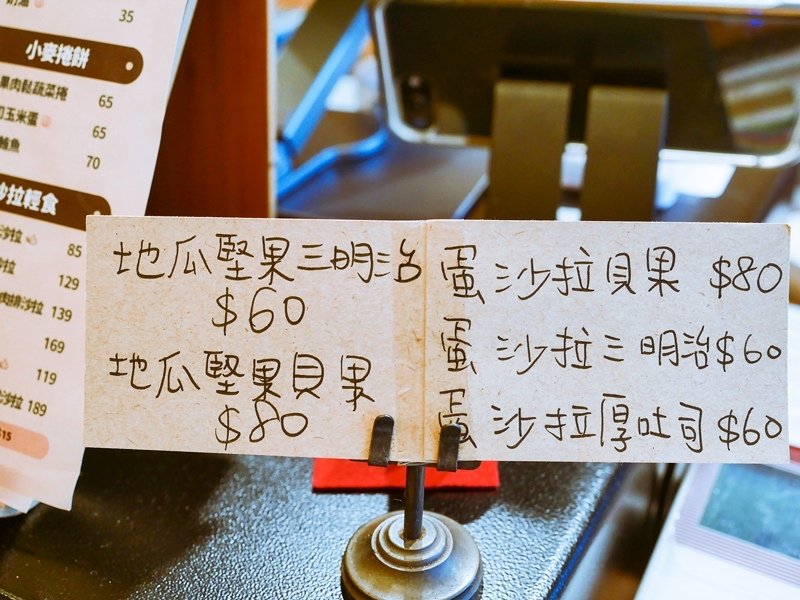 35
小麥捲餅
果肉鬆蔬菜捲
65
玉米蛋
65
鮪魚
70
沙拉輕食
沙拉
85
沙拉
129
139
169
119
沙拉 189
$15
地瓜堅果三明治
$60
地瓜堅果貝果
$80
蛋沙拉貝果 $80
蛋沙拉三明治$60
蛋沙拉厚吐司$60